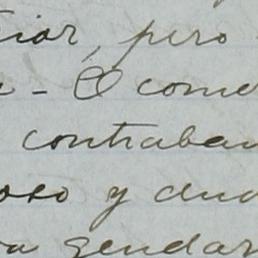 ciar, pero
- O come
contraban
oso y dud
gendar